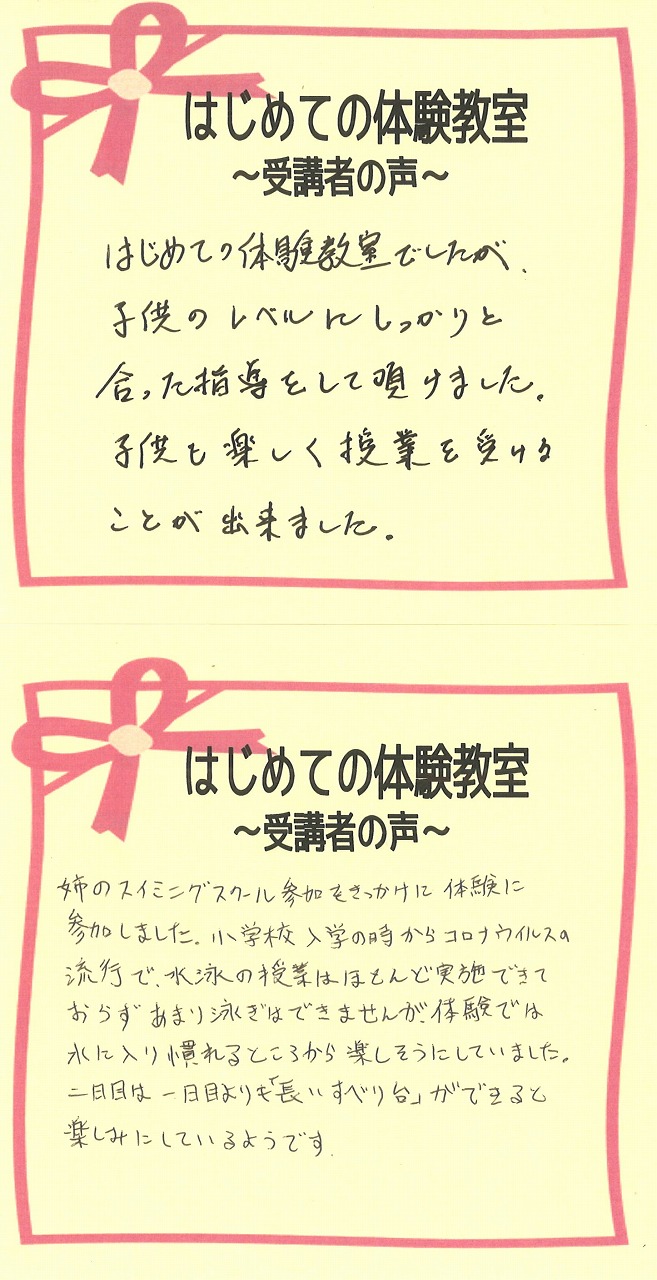 はじめての体験教室
～受講者の声～
はじめての体験教室でしたが、
子供のレベルにしっかりと
合った指導をして頂けました。
子供も楽しく授業を受ける
ことが出来ました。
はじめての体験教室
～受講者の声～
姉のスイミングスクール参加をきっかけに体験に
参加しました。小学校入学の時からコロナウイルスの
流行で、水泳の授業はほとんど実施できて
おらずあまり泳ぎはできませんが、体験では
水に入り慣れるところから楽しそうにしていました。
二日目は一日目よりも「長いすべり台」ができると
楽しみにしているようです。